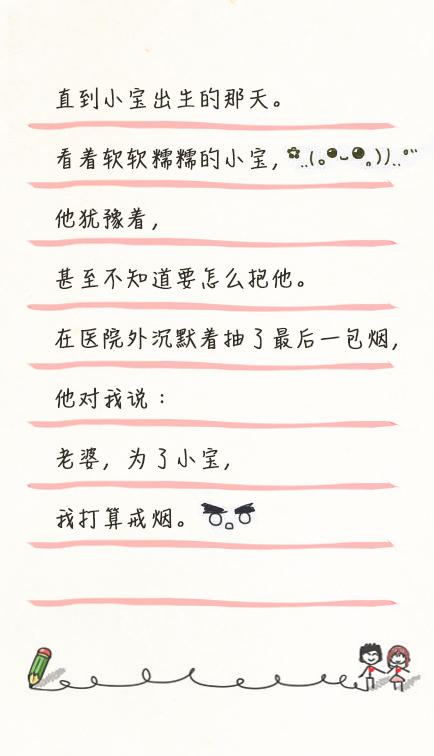 直到小宝出生的那天。
看着软软糯糯的小宝，
他犹豫着，
甚至不知道要怎么抱他。
在医院外沉默着抽了最后一包烟，
他对我说：
老婆，为了小宝，
我打算戒烟。